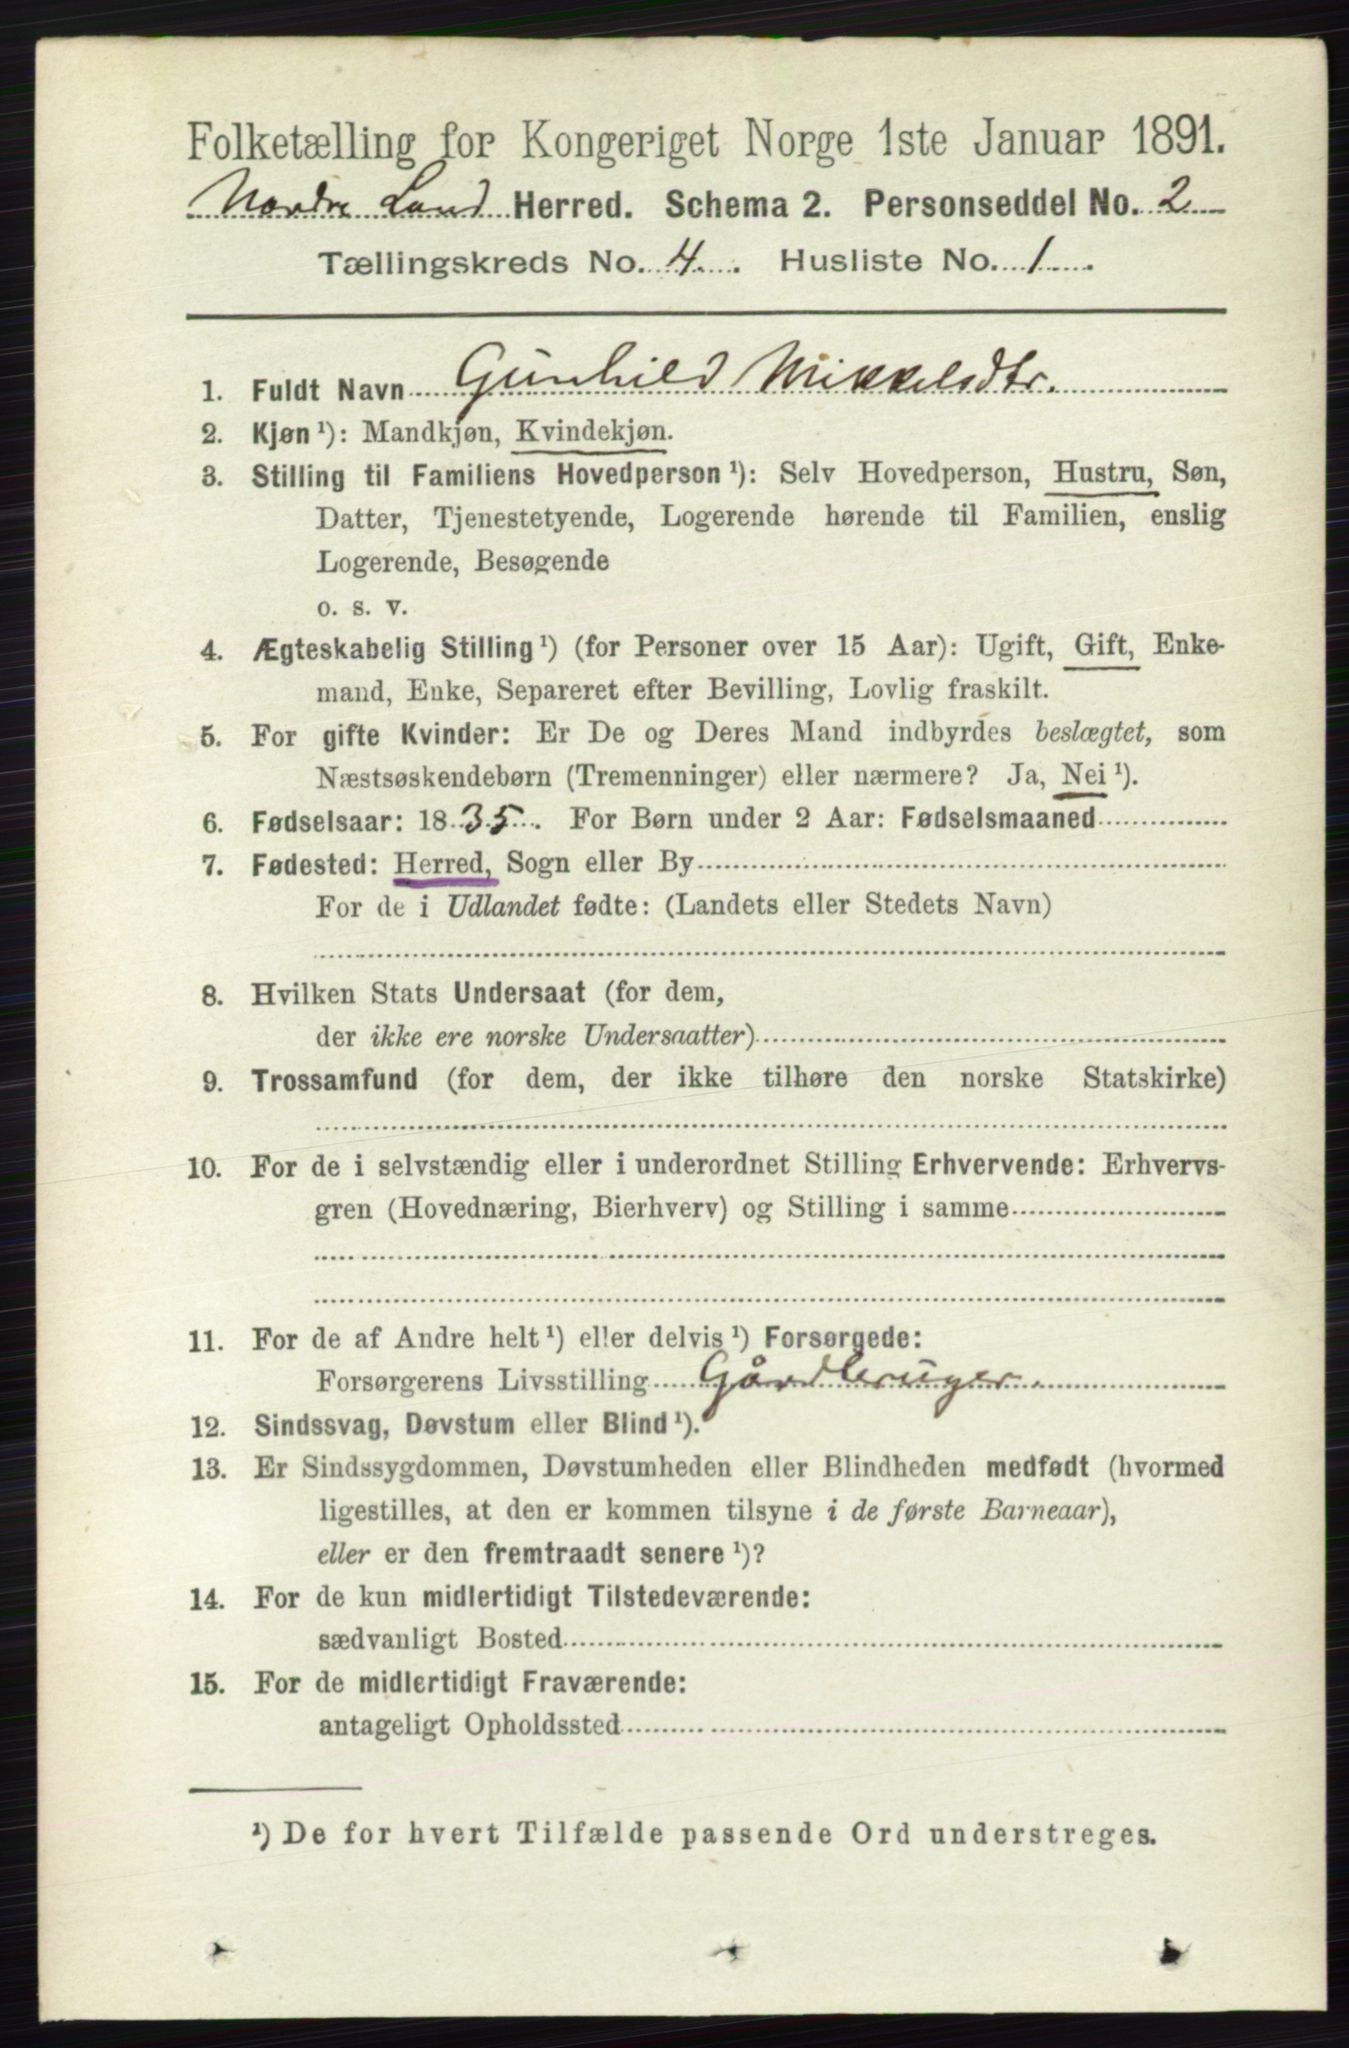 Folketælling for Kongeriget Norge 1ste Januar 1891.
Nordre Land Herred. Schema 2. Personseddel No. 2
Tællingskreds No. 4. Husliste No. 1
1. Fuldt Navn Gunhild Mikkelsdtr.
2. Kjøn ¹): Mandkjøn, Kvindekjøn.
3. Stilling til Familiens Hovedperson ¹): Selv Hovedperson, Hustru, Søn,
Datter, Tjenestetyende, Logerende hørende til Familien, enslig
Logerende, Besøgende
o. s. v.
4. Ægteskabelig Stilling ¹) (for Personer over 15 Aar): Ugift, Gift, Enke-
mand, Enke, Separeret efter Bevilling, Lovlig fraskilt.
5. For gifte Kvinder: Er De og Deres Mand indbyrdes beslægtet, som
Næstsøskendebørn (Tremenninger) eller nærmere? Ja, Nei ¹).
6. Fødselsaar: 1835. For Børn under 2 Aar: Fødselsmaaned
7. Fødested: Herred, Sogn eller By
For de i Udlandet fødte: (Landets eller Stedets Navn)
8. Hvilken Stats Undersaat (for dem,
der ikke ere norske Undersaatter)
9. Trossamfund (for dem, der ikke tilhøre den norske Statskirke)
10. For de i selvstændig eller i underordnet Stilling Erhvervende: Erhvervs-
gren (Hovednæring, Bierhverv) og Stilling i samme
11. For de af Andre helt ¹) eller delvis ¹) Forsørgede:
Forsørgerens Livsstilling Gårdbruger.
12. Sindssvag, Døvstum eller Blind ¹).
13. Er Sindssygdommen, Døvstumheden eller Blindheden medfødt (hvormed
ligestilles, at den er kommen tilsyne i de første Barneaar),
eller er den fremtraadt senere ¹)?
14. For de kun midlertidigt Tilstedeværende:
sædvanligt Bosted
15. For de midlertidigt Fraværende:
antageligt Opholdssted
¹) De for hvert Tilfælde passende Ord understreges.